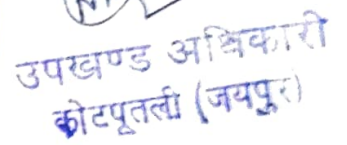 उपखण्ड अधिकारी
कोटपूतली (जयपुर)